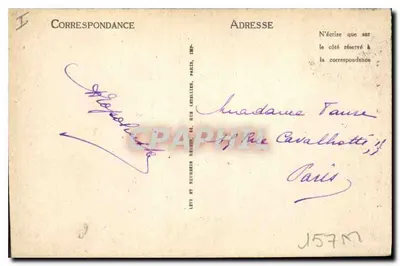 I
CORRESPONDANCE
ADRESSE
N'écrire que sur
le côté réservé à
la correspondance
LEVY ET NEURDEIN REUNIS, 44, RUE LETELLIER, PARIS, IMP.
Madame Faure
Rue Cavallotti
Paris
157M